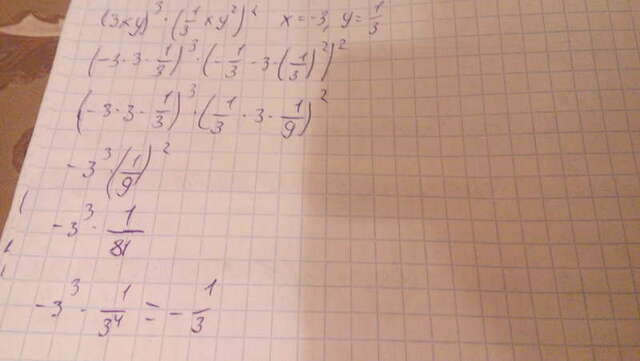 (3xy)³ · (1/3 xy²)²   x = -3, y = 1/3
(-3 · 3 · 1/3)³ · (-1/3 · 3 · (1/3)²)²
(-3 · 3 · 1/3)³ · (1/3 · 3 · 1/9)²
-3³ · (1/9)²
-3³ · 1/81
-3³ · 1/3⁴ = -1/3